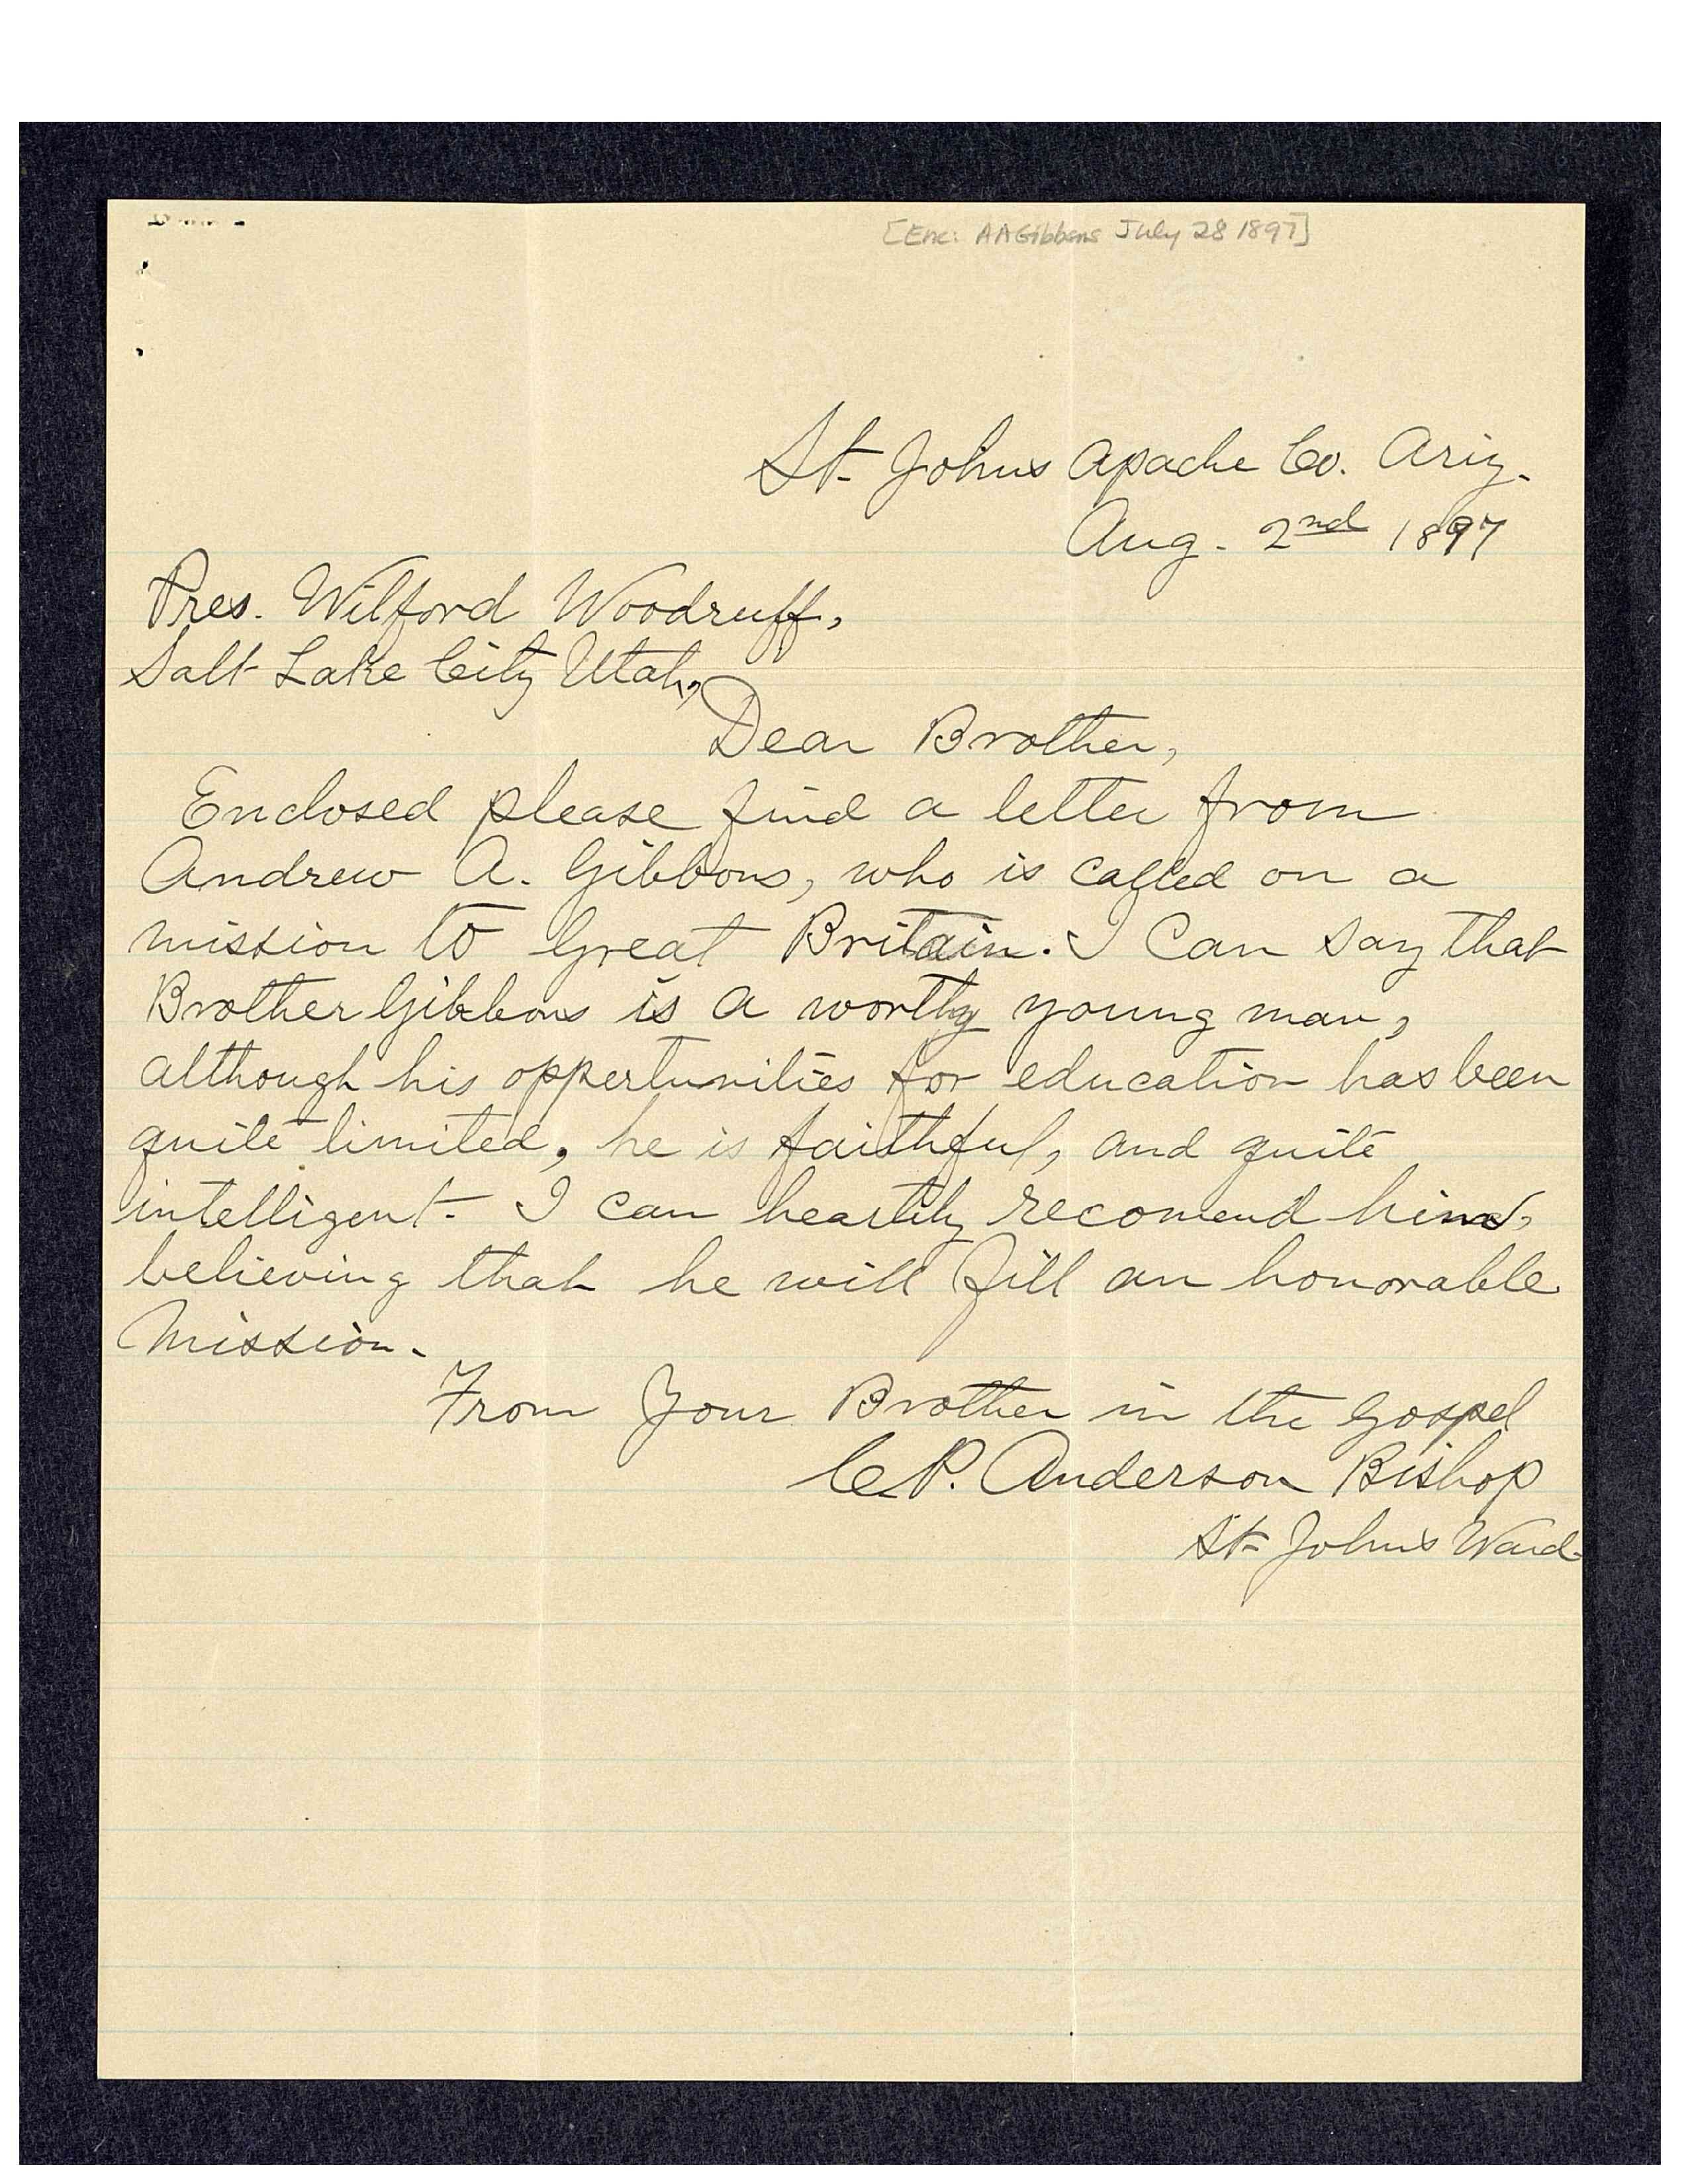 [Enc: AAGibbons July 28 1897]
St. Johns Apache Co. Ariz.
Aug. 2nd 1897
Pres. Wilford Woodruff,
Salt Lake City Utah,
Dear Brother,
Enclosed please find a letter from
Andrew A. Gibbons, who is called on a
mission to Great Britain. I Can say that
Brother Gibbons is a worthy young man,
although his oppertunities for education has been
quite limited, he is faithful, and quite
intelligent. I can heartily recomend him,
believing that he will fill an honorable
Mission.
From Your Brother in the Gospel
C.P. Anderson Bishop
St. Johns Ward